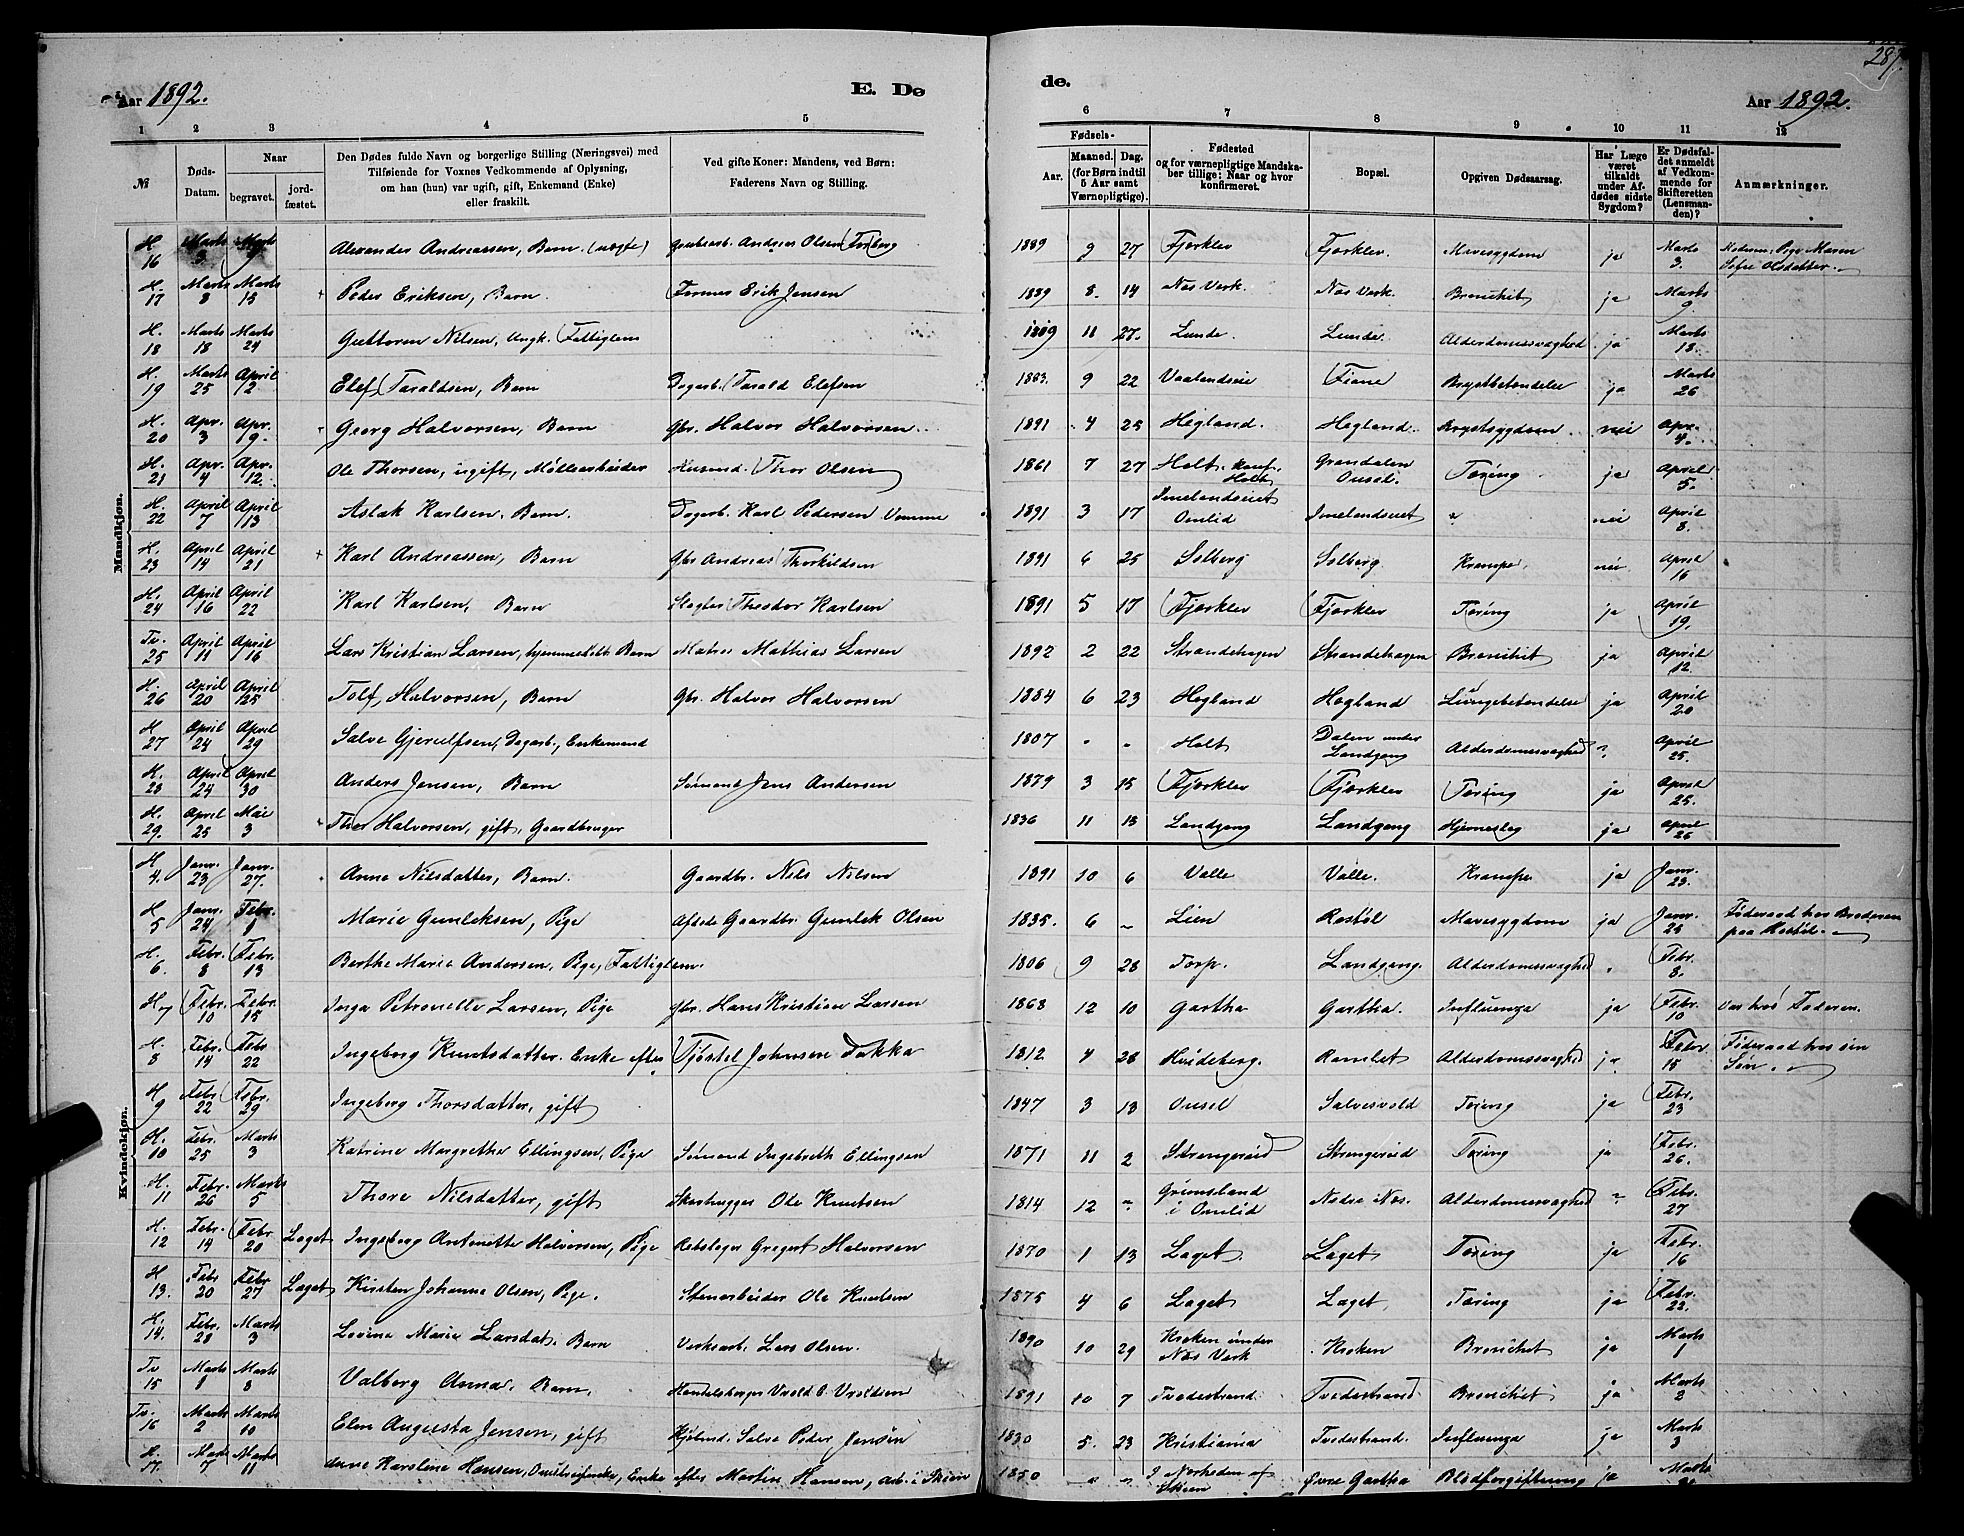 287.
Aar 1892. E. Dø de. Aar 1892.
1 2 3 4 5 6 7 8 9 10 11 12
№ Døds-Datum. Naar begravet. jordfæstet. Den Dødes fulde Navn og borgerlige Stilling (Næringsvei) med Tilføiende for Voxnes Vedkommende af Oplysning, om han (hun) var ugift, gift, Enkemand (Enke) eller fraskilt. Ved gifte Koner: Mandens, ved Børn: Faderens Navn og Stilling. Fødsels- Aar. Maaned. Dag. (for Børn indtil 5 Aar samt Værnepligtige). Fødested og for værnepligtige Mandskaber tillige: Naar og hvor konfirmeret. Bopæl. Opgiven Dødsaarsag. Har Læge været tilkaldt under Afdødes sidste Sygdom? Er Dødsfaldet anmeldt af Vedkommende for Skifteretten (Lensmanden)? Anmærkninger.
Mandkjøn.
H. 16 Marts 3 Marts 9 Alexander Andreassen, Barn. (uægte) Andreas Olsen Torberg 1889 9 27 Fjærklev Fjærklev Mavesygdom ja Marts 3. Moderen: Pige Maren Sofie Olsdatter.
H. 17 Marts 8 Marts 15 + Peder Eriksen, Barn. Former Erik Jensen 1889 8. 14 Næs Verk. Næs Verk. Bronchit ja Marts 9.
H. 18 Marts 18 Marts 24 Guttorm Nilsen, Ungk. Fattiglem 1809 11 27. Lunde. Lunde. Alderdomssvaghed ja Marts 18.
H. 19 Marts 25 April 2 Elef Taraldsen, Barn Dagarb. Tarald Elefsen 1883. 9 22 Vaalandseie Fiane Brystbetændelse ja Marts 26
H. 20 Apr. 3 Apr. 9. Georg Halvorsen, Barn Gbr. Halvor Halvorsen 1891 4 25 Hegland. Hegland. Brystsygdom nei Apr. 4.
H. 21 Apr. 4 Apr. 12. Ole Thorsen, ugift, Møllearbeider Husmd. Thor Olsen 1861 7 27 Holt, konf. Holt Grændalen Ousel. Tæring ja April 5.
H. 22 April 7 April 13 Aslak Karlsen, Barn. Dagarb. Karl Pedersen Vemme 1891 3 17 Imelandseiet Omlid Imelandseiet " nei April 8.
H. 23 April 14 April 21 + Karl Andreassen, Barn Gbr Andreas Thorkildsen 1891 6 25 Solberg Solberg Krampe nei April 16
H. 24 April 16 April 22 Karl Karlsen, Barn Slagter Theodor Karlsen 1891 5 17 Fjærklev Fjærklev Tæring ja April 19.
Tv. 25 April 11 April 16 Lars Kristian Larsen, hjemmedøbt Barn Matros Mathias Larsen 1892 2 22 Strandehagen Strandehagen Bronchit ja April 12.
H. 26 April 20 April 25 Tolf Halvorsen, Barn Gbr. Halvor Halvorsen 1884 6 23 Hegland Hegland Lungebetændelse ja April 20
H. 27 April 24 April 29 Salve Gjerulfsen, Dagarb., Enkemand 1807 " " Holt Dalen under Landgang Alderdomssvaghed " April 25.
H. 28 April 24 April 30 Anders Jensen, Barn Sømand Jens Andersen 1879 3 15 Fjærklev Fjærklev Tæring ja April 25.
H. 29. April 25 Mai 3 Thor Halvorsen, gift, Gaardbruger 1836 11 13 Landgang Landgang Hjerneslag ja April 26
Kvindekjøn.
H 4. Janr. 23 Janr. 27. Anne Nilsdatter, Barn. Gaardbr. Nils Nilsen 1891 10 6 Valle Valle. Krampe ja Janr. 23.
H 5 Janr. 24 Febr. 1 Marie Gunleksen, Pige Afdøde Gaardbr. Gunlek Olsen 1835. 6 " Lien Røstøl Mavesygdom ja Janr. 25 Føderaad hos Broderen paa Røstøl.
H. 6. Febr. 8 Febr. 13 Berthe Marie Andersen, Pige, Fattiglem. 1806 9 28 Torp. Landgang. Alderdomssvaghed " Febr. 8.
H. 7 Febr. 10 Febr. 15 Inga Petronelle Larsen, Pige Gbr. Hans Kristian Larsen 1868 12 10 Gartha Gartha. Influenza ja Febr. 10 Var hos Faderen.
H. 8 Febr. 14 Febr 22 Ingeborg Knutsdatter. Enke efter Tjøstel Johnsen Dakka 1812 4 28 Hvideberg. Ramlet Alderdomssvaghed ja Febr 15 Føderaad hos sin Søn.
H 9 Febr 22 Febr. 29 Ingeborg Thorsdatter, gift 1847 3 13 Ousel Salvesvold Tæring ja Febr. 23
H. 10 Febr. 25 Marts 3 Katrine Margrethe Ellingsen, Pige Sømand Ingebreth Ellingsen 1871 11 2 Strengereid Strengereid Tæring ja Febr. 26.
H. 11 Febr. 26 Marts 5 Thore Nilsdatter, gift Skovhugger Ole Knutsen 1814 12 " Grimsland i Omlid Nedre Næs. Alderdomssvaghed " Febr. 27
H. 12 Febr. 14 Febr 20 Laget Ingeborg Antonette Halvorsen, Pige Rebslager Gregert Halvorsen 1870 1 13 Laget. Laget Tæring ja Febr. 16
H 13. Febr 20 Febr 27 Laget Kirsten Johanne Olsen, Pige. Stenarbeider Ole Knutsen 1875 4 6 Laget Laget Tæring ja Febr. 22.
H. 14. Febr. 28 Marts 3 Lovine Marie Larsdat. Barn Verksarb. Lars Olsen. 1890 10 29 Kroken under Næs Verk Kroken Bronchit ja Marts 1
Tv 15 Marts 1 Marts 8 Valborg Anna, Barn. Handelsborger 1891 10 7 Tvedestrand. Tvedestrand Bronchit ja Marts 2
Tv. 16 Marts 2 Marts 10 Elen Augusta Jensen, gift Salve Peder Jensen 1830 5. 23 Kristiania Tvedestrand. Influenza ja Marts 3
H. 17. Marts 7 Marts 11 Anne Karoline Hansen, Enke efter Martin Hansen, Arb. i Skien 1850 " " I Nærheden af Skien Øvre Gartha Blodforgiftning ja Marts